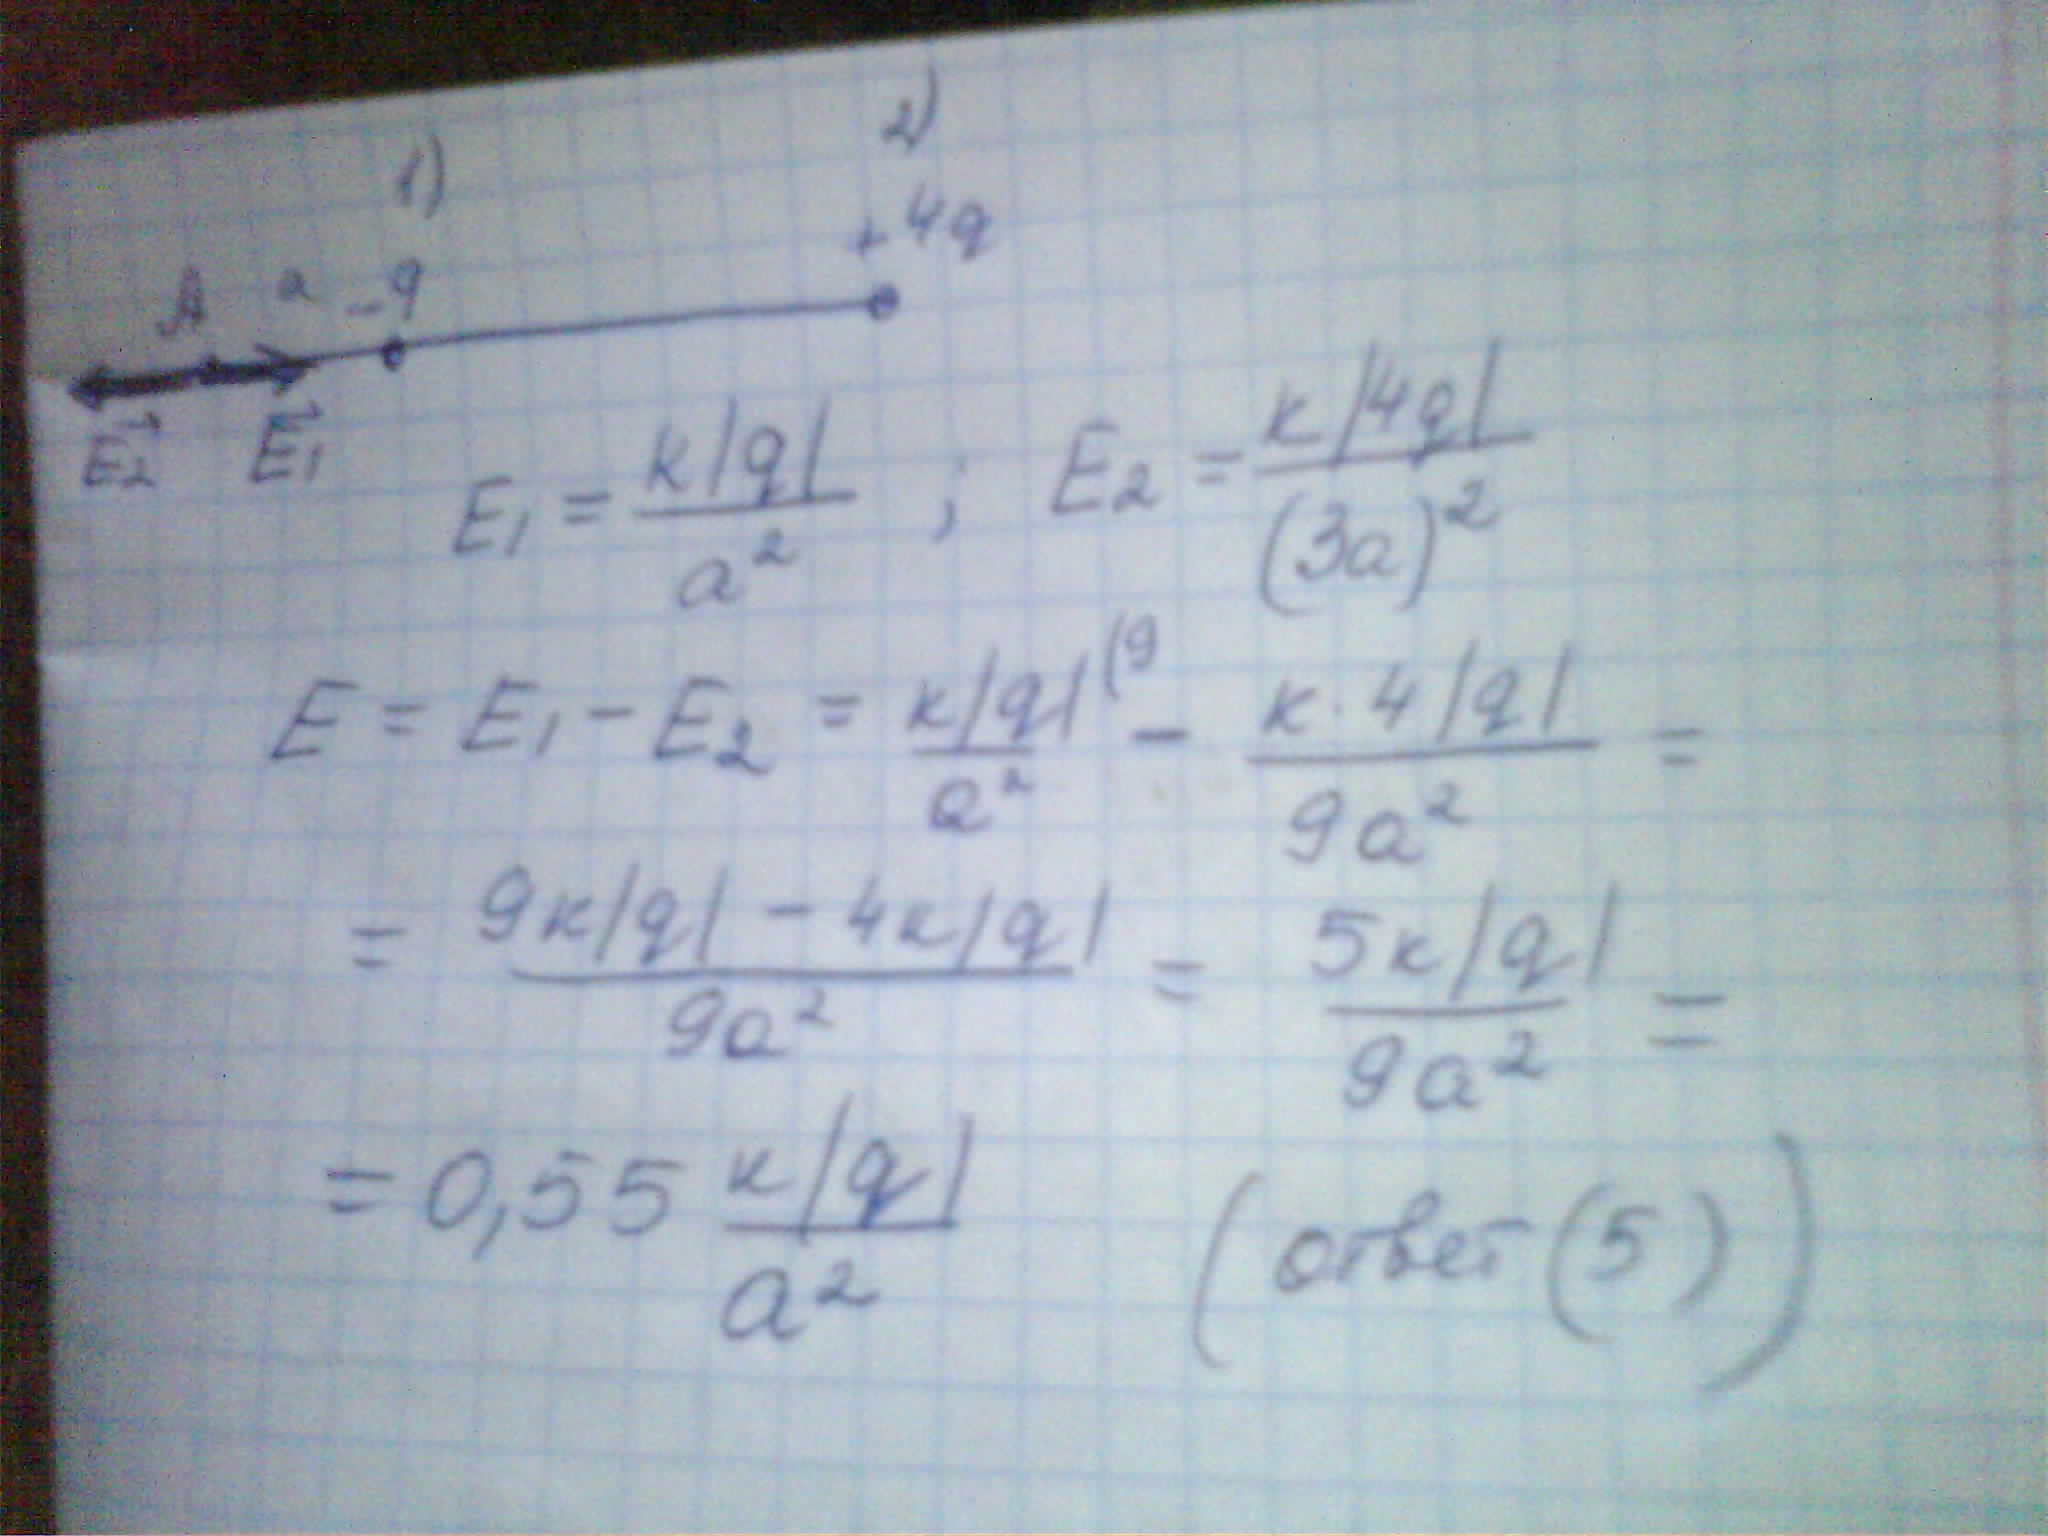 1) 2)
A a -q +4q
E⃗2 E⃗1
E1 = к|q| / a² ; E2 = к|4q| / (3a)²
E = E1 - E2 = к|q| (9 / a² - к·4|q| / 9a² =
= 9к|q| - 4к|q| / 9a² = 5к|q| / 9a² =
= 0,55 к|q| / a² (ответ (5))